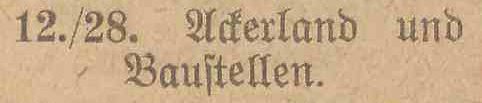 12./28. Ackerland und
Bauſtellen.